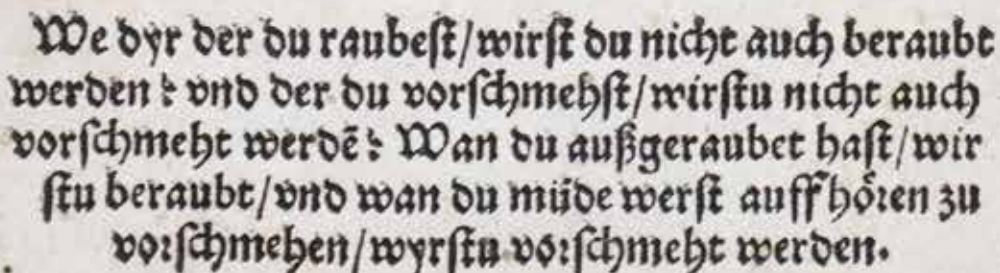 We dyr der du raubeſt/wirſt du nicht auch beraubt
werden? vnd der du vorſchmehſt/wirſtu nicht auch
vorſchmeht werdē? Wan du außgeraubet haſt/wir
ſtu beraubt/vnd wan du müde werſt auff hoͤren zu
vorſchmehen/wyrſtu vorſchmeht werden.